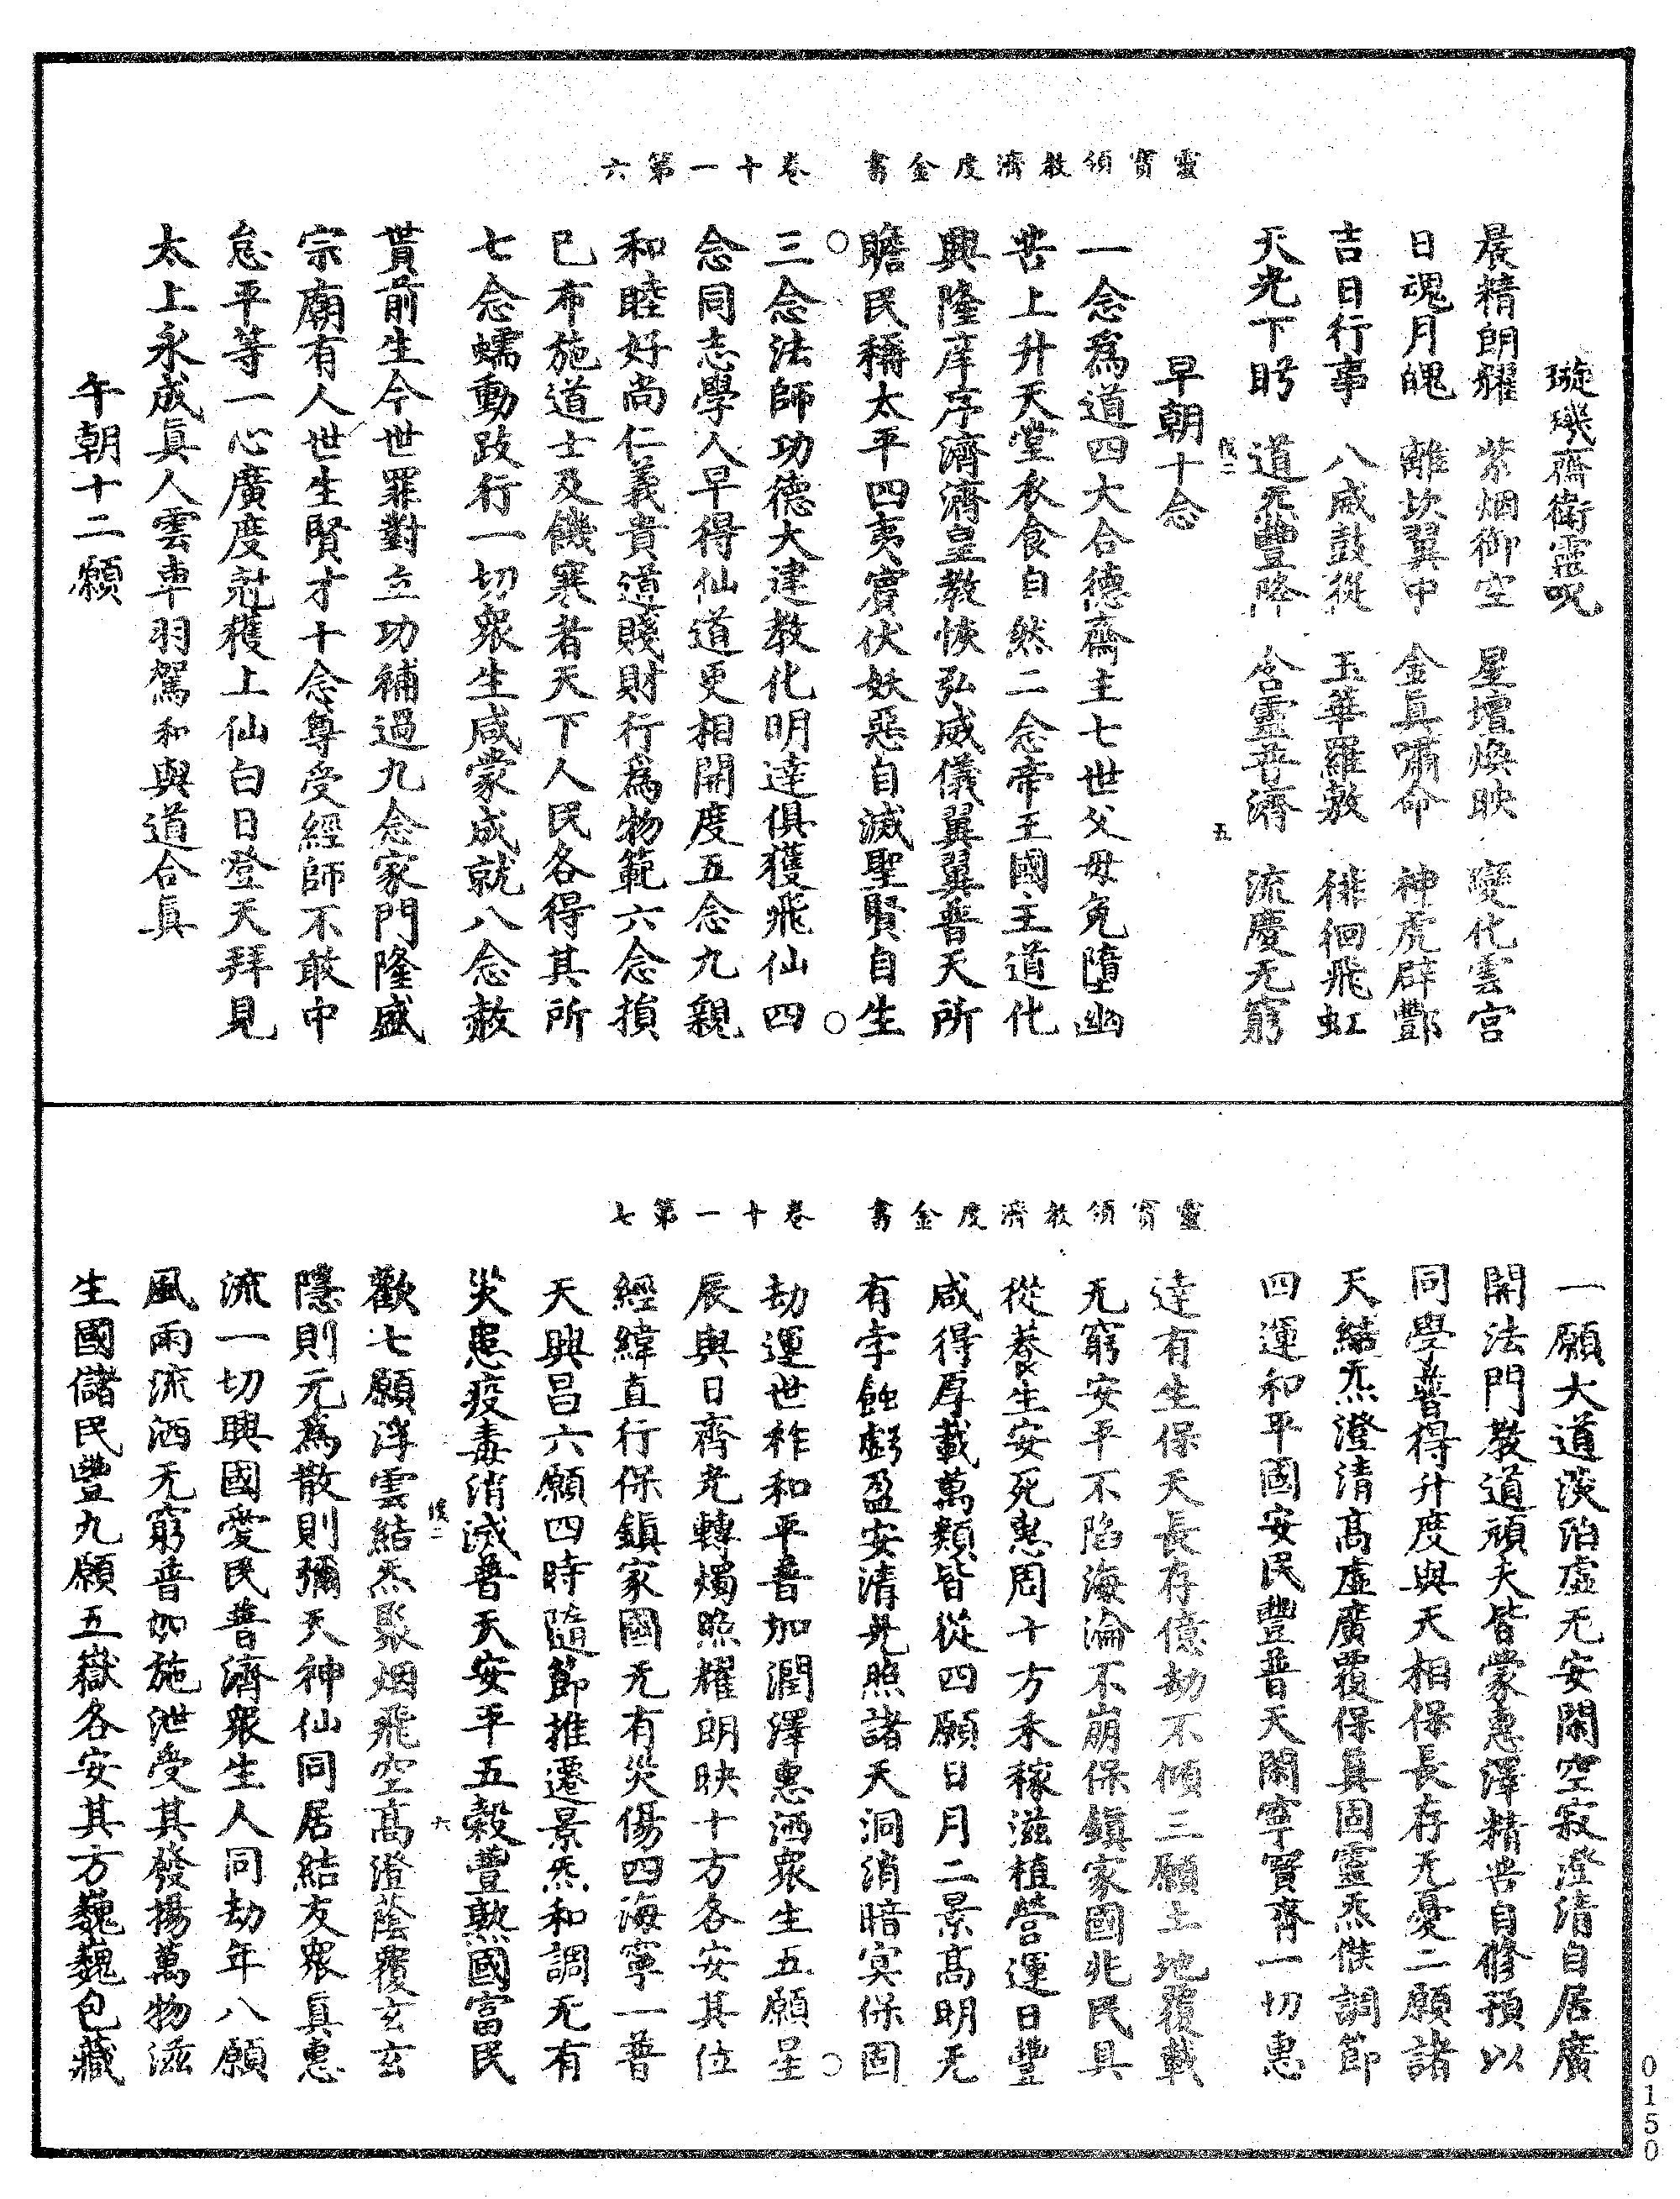 靈寶領教濟度金書　卷十一第六
璇璣齋衛靈呪
晨精朗耀　紫烟御空　星壇煥映　變化雲宮
日魂月魄　離坎翼中　金真嘯命　神虎辟酆
吉日行事　八威鼓從　玉華羅敷　徘徊飛虹
天光下眄　道炁豐降　含靈普濟　流慶无窮
早朝十念
一念爲道四大合德齋主七世父母免墮幽
苦上升天堂衣食自然二念帝王國主道化
興隆庠序濟濟皇教恢弘威儀翼翼普天所
瞻民稱太平四夷賓伏妖惡自滅聖賢自生
三念法師功德大建教化明達俱獲飛仙四
念同志學人早得仙道更相開度五念九親
和睦好尚仁義貴道賤財行爲物範六念損
已布施道士及饑寒者天下人民各得其所
七念蠕動跂行一切衆生咸蒙成就八念赦
貰前生今世罪對立功補過九念家門隆盛
宗廟有人世生賢才十念尊受經師不敢中
怠平等一心廣度愆獲上仙白日登天拜見
太上永成真人雲車羽駕和與道合真
午朝十二願
靈寶領教濟度金書　卷十一第七
一願大道淡泊虛无安閑空寂澄清自居廣
開法門教道頑夫皆蒙惠澤精苦自修預以
同學普得升度與天相保長存无憂二願諸
天結炁澄清高虛廣覆保真固靈炁候調節
四運和平國安民豐普天閑寧寶齊一切惠
達有生保天長存億劫不傾三願土地覆載
无窮安平不陷海淪不崩保鎮家國兆民具
從養生安死惠周十方禾稼滋植營運日豐
咸得厚載萬類皆從四願日月二景高明无
有孛蝕虧盈安清晃照諸天洞消暗冥保固
劫運世祚和平普加潤澤惠洒衆生五願星
辰與日齊光轉燭照耀朗映十方各安其位
經緯直行保鎮家國无有災傷四海寧一普
天興昌六願四時隨節推遷景炁和調无有
災患疫毒消滅普天安平五穀豐熟國富民
歡七願浮雲結炁聚烟飛空高澄蔭覆玄玄
隱則元爲散則彌天神仙同居結友衆真惠
流一切興國愛民普濟衆生人同劫年八願
風雨流洒无窮普加施泄受其發揚萬物滋
生國儲民豐九願五嶽各安其方巍巍包藏
0150